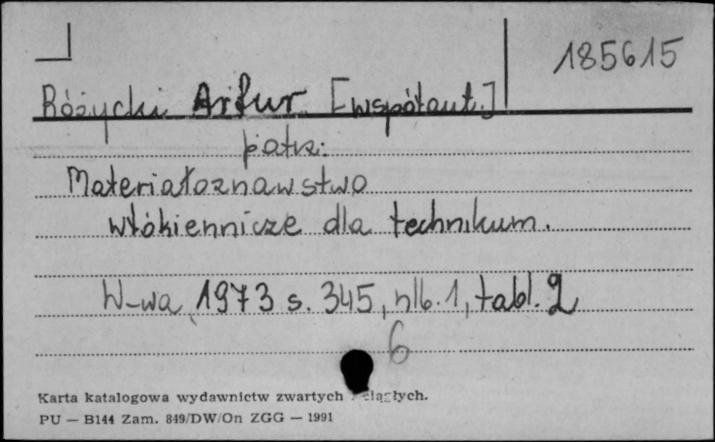 185615
Różycki Artur [współaut.]
patrz:
Materiałoznawstwo
włókiennicze dla technikum.
W-wa, 1973 s. 345, nlb. 1, tabl. 2
6
Karta katalogowa wydawnictw zwartych i ciągłych.
PU — B144 Zam. 849/DW/On ZGG — 1991